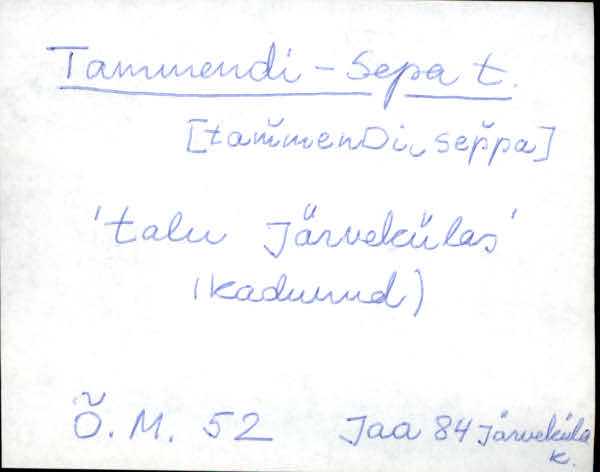 Tammendi-Sepa t.
[tam̆menDi‿sep̆pa]
'talu Järvekülas'
(kadunud)
Õ. M. 52 Jaa 84 Järveküla
k.